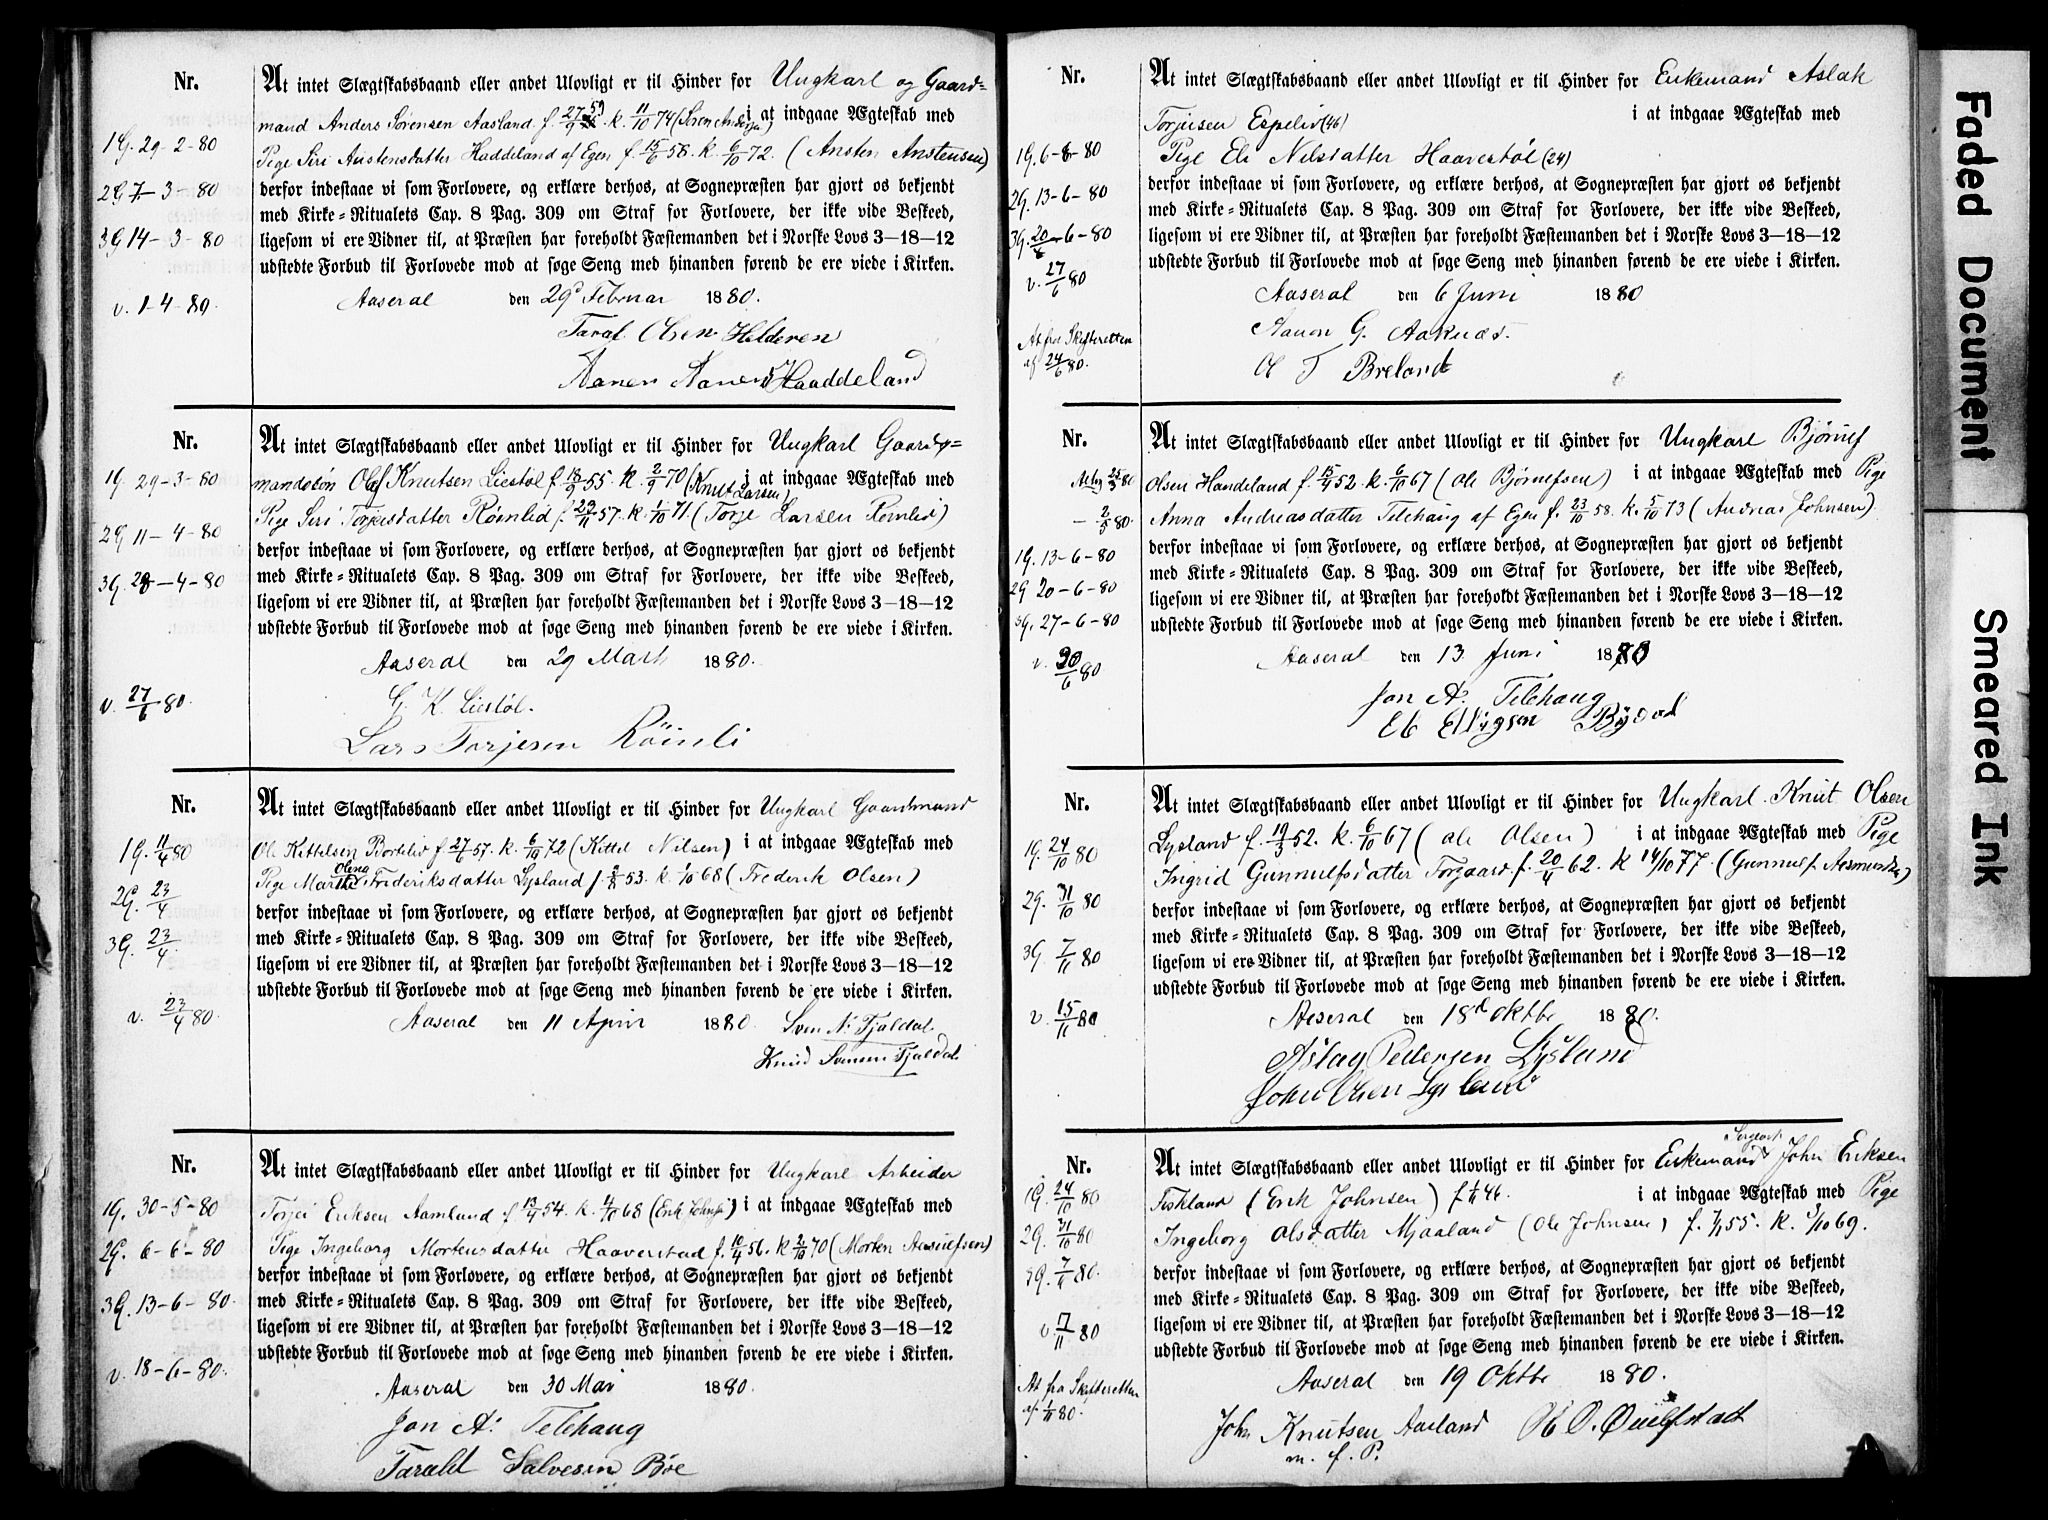 Nr.
At intet Slægtskabsbaand eller andet Ulovligt er til Hinder for Ungkarl og Gaard=
mand Anders Sørensen Aasland f. 27/9 59 k. 11/10 74 (Søren Andersen) i at indgaae Ægteskab med
Pige Siri Austensdatter Haddeland af Egen f. 15/6 58 k. 6/10 72. (Ansten Anstensen)
derfor indestaae vi som Forlovere, og erklære derhos, at Sognepræsten har gjort os bekjendt
med Kirke=Ritualets Cap. 8 Pag. 309 om Straf for Forlovere, der ikke vide Beskeed,
ligesom vi ere Vidner til, at Præsten har foreholdt Fæstemanden det i Norske Lovs 3—18—12
udstedte Forbud til Forlovede mod at søge Seng med hinanden førend de ere viede i Kirken.
Aaseral den 29 Februar 1880.
Taral Olsen Helderen
Aanen Aanens Haaddeland
1G. 29-2-80
2G 7-3-80
3G 14-3-80
v. 1-4-80
Nr.
At intet Slægtskabsbaand eller andet Ulovligt er til Hinder for Ungkarl Gaard=
mandssøn Olaf Knutsen Liestøl f 18/9 55. k. 2/9 70 (Knut Larsen) i at indgaae Ægteskab med
Pige Siri Torjesdatter Röinlid f. 29/11 57. k. 1/10 71 (Torje Larsen Röinlid)
derfor indestaae vi som Forlovere, og erklære derhos, at Sognepræsten har gjort os bekjendt
med Kirke=Ritualets Cap. 8 Pag. 309 om Straf for Forlovere, der ikke vide Beskeed,
ligesom vi ere Vidner til, at Præsten har foreholdt Fæstemanden det i Norske Lovs 3—18—12
udstedte Forbud til Forlovede mod at søge Seng med hinanden førend de ere viede i Kirken.
Aaseral den 29 Marts 1880.
G. K. Liestøl.
Lars Torjesen Röinli
1G. 29-3-80
2G 11-4-80
3G. 28-4-80
v. 27/6 80.
Nr.
At intet Slægtskabsbaand eller andet Ulovligt er til Hinder for Ungkarl Gaardmand
Ole Kittelsen Bortelid f 27/6 57. k. 6/10 72 (Kittel Nilsen) i at indgaae Ægteskab med
Pige Marthe Olena Frederiksdatter Lysland f 2/8 53. k. 1/10 68 (Frederik Olsen)
derfor indestaae vi som Forlovere, og erklære derhos, at Sognepræsten har gjort os bekjendt
med Kirke=Ritualets Cap. 8 Pag. 309 om Straf for Forlovere, der ikke vide Beskeed,
ligesom vi ere Vidner til, at Præsten har foreholdt Fæstemanden det i Norske Lovs 3—18—12
udstedte Forbud til Forlovede mod at søge Seng med hinanden førend de ere viede i Kirken.
Aaseral den 11 April 1880. Sven N. Fjaldal.
Knud Svensen Fjaldal
1G. 11/4 80
2G. 23/4
3G. 23/4
v. 23/4 80.
Nr.
At intet Slægtskabsbaand eller andet Ulovligt er til Hinder for Ungkarl Arbeider
Torjei Eriksen Aamland f 13/4 54. k. 4/10 68 (Erik Johnsen) i at indgaae Ægteskab med
Pige Ingeborg Mortensdatter Haaverstad f. 10/4 56. k 2/10 70 (Morten Aasulfsen)
derfor indestaae vi som Forlovere, og erklære derhos, at Sognepræsten har gjort os bekjendt
med Kirke=Ritualets Cap. 8 Pag. 309 om Straf for Forlovere, der ikke vide Beskeed,
ligesom vi ere Vidner til, at Præsten har foreholdt Fæstemanden det i Norske Lovs 3—18—12
udstedte Forbud til Forlovede mod at søge Seng med hinanden førend de ere viede i Kirken.
Aaseral den 30 Mai 1880.
Jon A. Telehaug
Tarald Salvesen Böe
1G. 30-5-80
2G. 6-6-80
3G. 13-6-80.
v. 18-6-80.
Nr.
At intet Slægtskabsbaand eller andet Ulovligt er til Hinder for Enkemand Aslak
Torjusen Espelid (46) i at indgaae Ægteskab med
Pige Eli Nilsdatter Haaverstøl (24)
derfor indestaae vi som Forlovere, og erklære derhos, at Sognepræsten har gjort os bekjendt
med Kirke=Ritualets Cap. 8 Pag. 309 om Straf for Forlovere, der ikke vide Beskeed,
ligesom vi ere Vidner til, at Præsten har foreholdt Fæstemanden det i Norske Lovs 3—18—12
udstedte Forbud til Forlovede mod at søge Seng med hinanden førend de ere viede i Kirken.
Aaseral den 6 Juni 1880
Aanon G. Aaknes.
O T Breland
1G. 6-6-80
2G. 13-6-80
3G. 20-6-80
v. 27/6 80
At fra Skifteretten
af 24/6 80.
Nr.
At intet Slægtskabsbaand eller andet Ulovligt er til Hinder for Ungkarl Bjørnuf
Olsen Handeland f. 15/4 52. k. 6/10 67 (Ole Bjørnufsen) i at indgaae Ægteskab med Pige
Anna Andreasdatter Telehaug af Egen f. 23/10 58. k. 5/10 73 (Andreas Johnsen).
derfor indestaae vi som Forlovere, og erklære derhos, at Sognepræsten har gjort os bekjendt
med Kirke=Ritualets Cap. 8 Pag. 309 om Straf for Forlovere, der ikke vide Beskeed,
ligesom vi ere Vidner til, at Præsten har foreholdt Fæstemanden det i Norske Lovs 3—18—12
udstedte Forbud til Forlovede mod at søge Seng med hinanden førend de ere viede i Kirken.
Aaseral den 13 Juni 1880
Jon A. Telehaug
El Ellingsen Bydal
25/3 80
- 2/5 80.
1G. 13-6-80
2G 20-6-80
3G. 27-6-80
v. 30/6 80
Nr.
At intet Slægtskabsbaand eller andet Ulovligt er til Hinder for Ungkarl Knut Olsen
Lysland f. 19/3 52. k. 6/10 67 (Ole Olsen) i at indgaae Ægteskab med Pige
Ingrid Gunnulfsdatter Torgaard f. 20/4 62. k 14/10 77 (Gunnulf Aasmundsen)
derfor indestaae vi som Forlovere, og erklære derhos, at Sognepræsten har gjort os bekjendt
med Kirke=Ritualets Cap. 8 Pag. 309 om Straf for Forlovere, der ikke vide Beskeed,
ligesom vi ere Vidner til, at Præsten har foreholdt Fæstemanden det i Norske Lovs 3—18—12
udstedte Forbud til Forlovede mod at søge Seng med hinanden førend de ere viede i Kirken.
Aaseral den 18d Oktbr 1880.
Aslag Pedersen Lyslund
John Olsen Lysland
1G. 24/10 80
2G. 31/10 80
3G. 7/11 80
v. 15/11 80
Nr.
At intet Slægtskabsbaand eller andet Ulovligt er til Hinder for Enkemand Sergeant John Eriksen
Fiskland (Erik Johnsen) f 1/11 46. i at indgaae Ægteskab med Pige
Ingeborg Olsdatter Mjaaland (Ole Johnsen) f. 7/1 55. k. 3/10 69.
derfor indestaae vi som Forlovere, og erklære derhos, at Sognepræsten har gjort os bekjendt
med Kirke=Ritualets Cap. 8 Pag. 309 om Straf for Forlovere, der ikke vide Beskeed,
ligesom vi ere Vidner til, at Præsten har foreholdt Fæstemanden det i Norske Lovs 3—18—12
udstedte Forbud til Forlovede mod at søge Seng med hinanden førend de ere viede i Kirken.
Aaseral den 19 Oktbr 1880.
John Knutsen Aasland
m. f. P.
1G. 24/10 80
2G. 31/10 80
3G. 7/11 80.
v. 17/11 80
At fra Skifteretten
af 1/11 80.
Faded Document
Smeared Ink